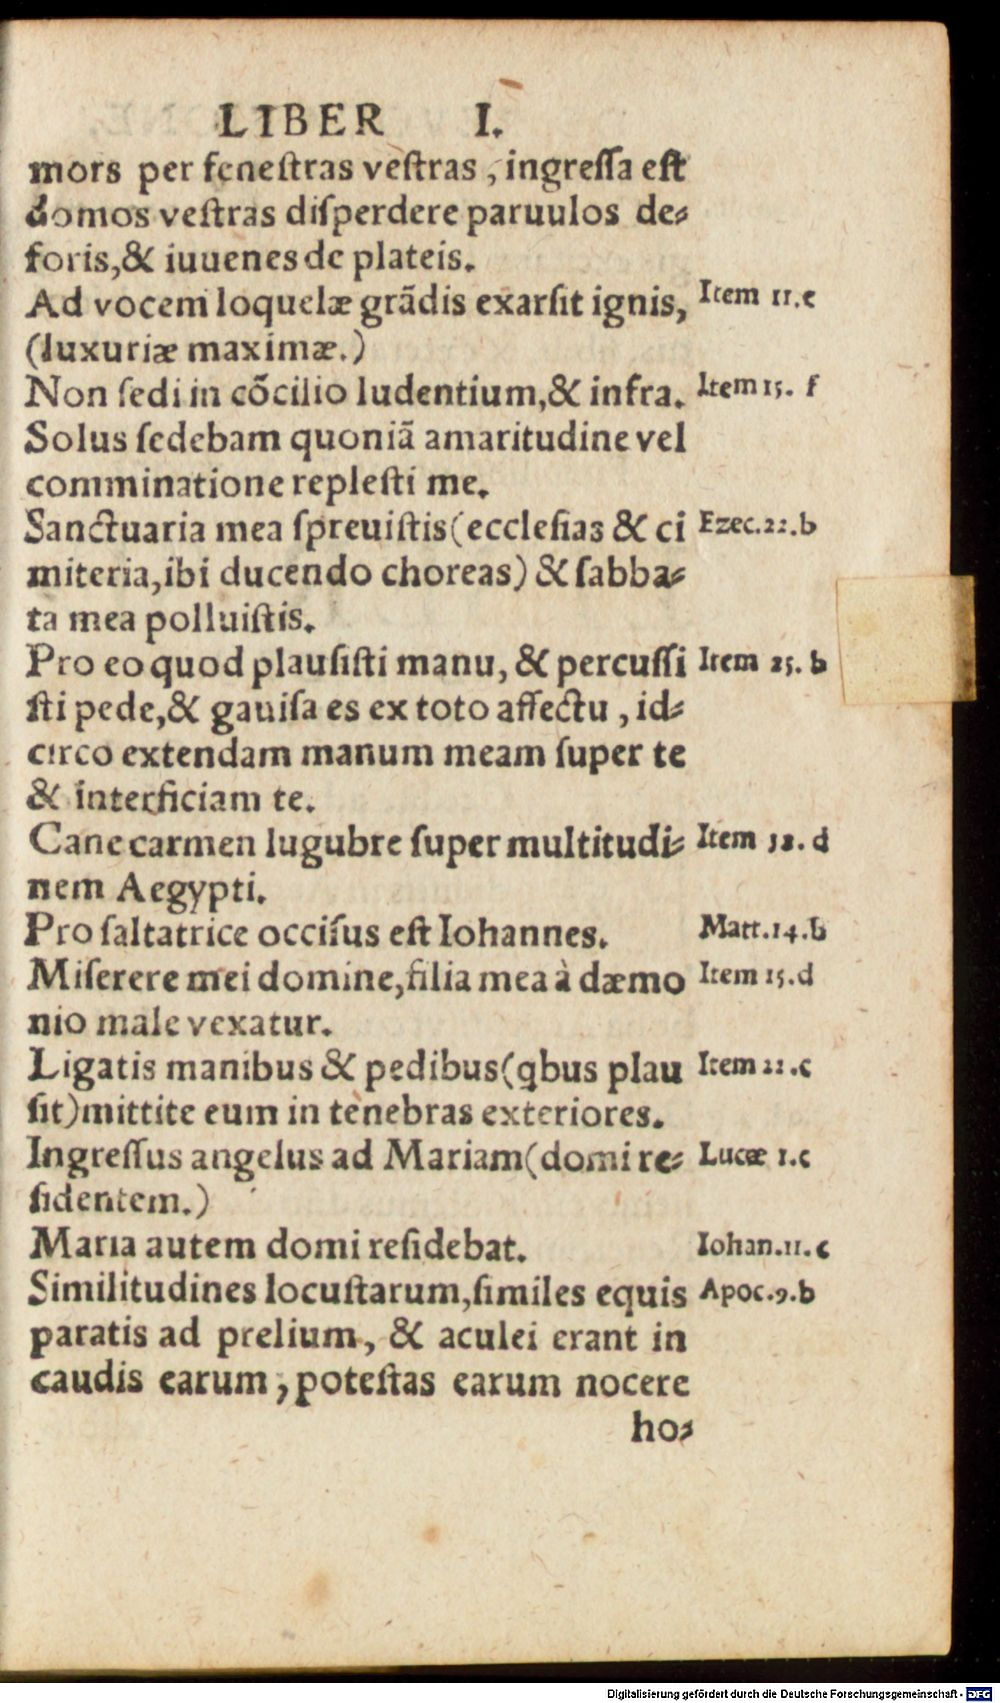 LIBER I.
mors per feneſtras veſtras, ingreſſa eſt
domos veſtras diſperdere paruulos de⸗
foris,& iuuenes de plateis.
Ad vocem loquelæ grãdis exarſit ignis, Item 11.c
(luxuriæ maximæ.)
Non ſedi in cõcilio ludentium,& infra. Item 15. f
Solus ſedebam quoniã amaritudine vel
comminatione repleſti me.
Sanctuaria mea ſpreuiſtis(eccleſias & ci Ezec.22.b
miteria,ibi ducendo choreas) & ſabba⸗
ta mea polluiſtis.
Pro eo quod plauſiſti manu, & percuſſi Item 25. b
ſti pede,& gauiſa es ex toto affectu, id⸗
circo extendam manum meam ſuper te
& interficiam te.
Cane carmen lugubre ſuper multitudi⸗ Item 32. d
nem Aegypti.
Pro ſaltatrice occiſus eſt Iohannes. Matt.14.b
Miſerere mei domine,filia mea à dæmo Item 15.d
nio male vexatur.
Ligatis manibus & pedibus(qbus plau Item 22.c
ſit)mittite eum in tenebras exteriores.
Ingreſſus angelus ad Mariam(domi re⸗ Lucæ 1.c
ſidentem.)
Maria autem domi reſidebat. Iohan.11.c
Similitudines locuſtarum,ſimiles equis Apoc.9.b
paratis ad prelium, & aculei erant in
caudis earum, poteſtas earum nocere
ho⸗
Digitalisierung gefördert durch die Deutsche Forschungsgemeinschaft - DFG